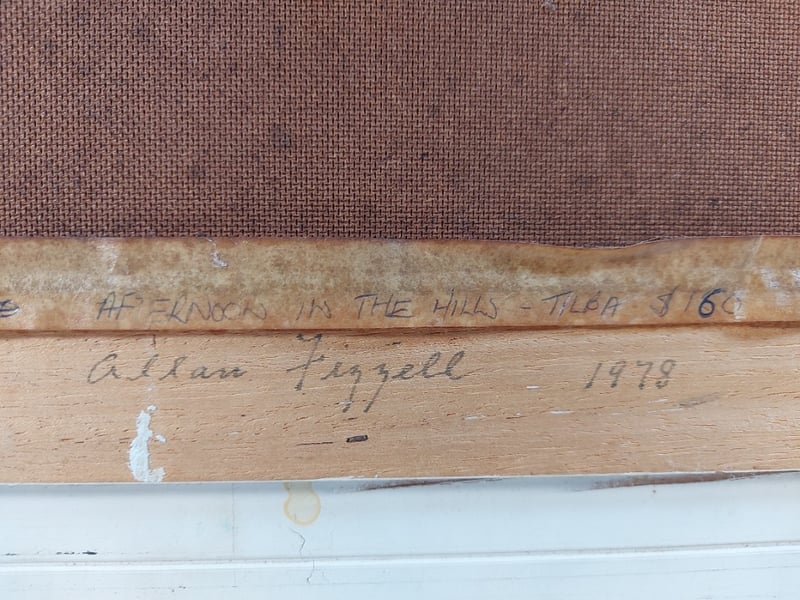 AFTERNOON IN THE HILLS - TILBA $160
Allan Fizzell 1978